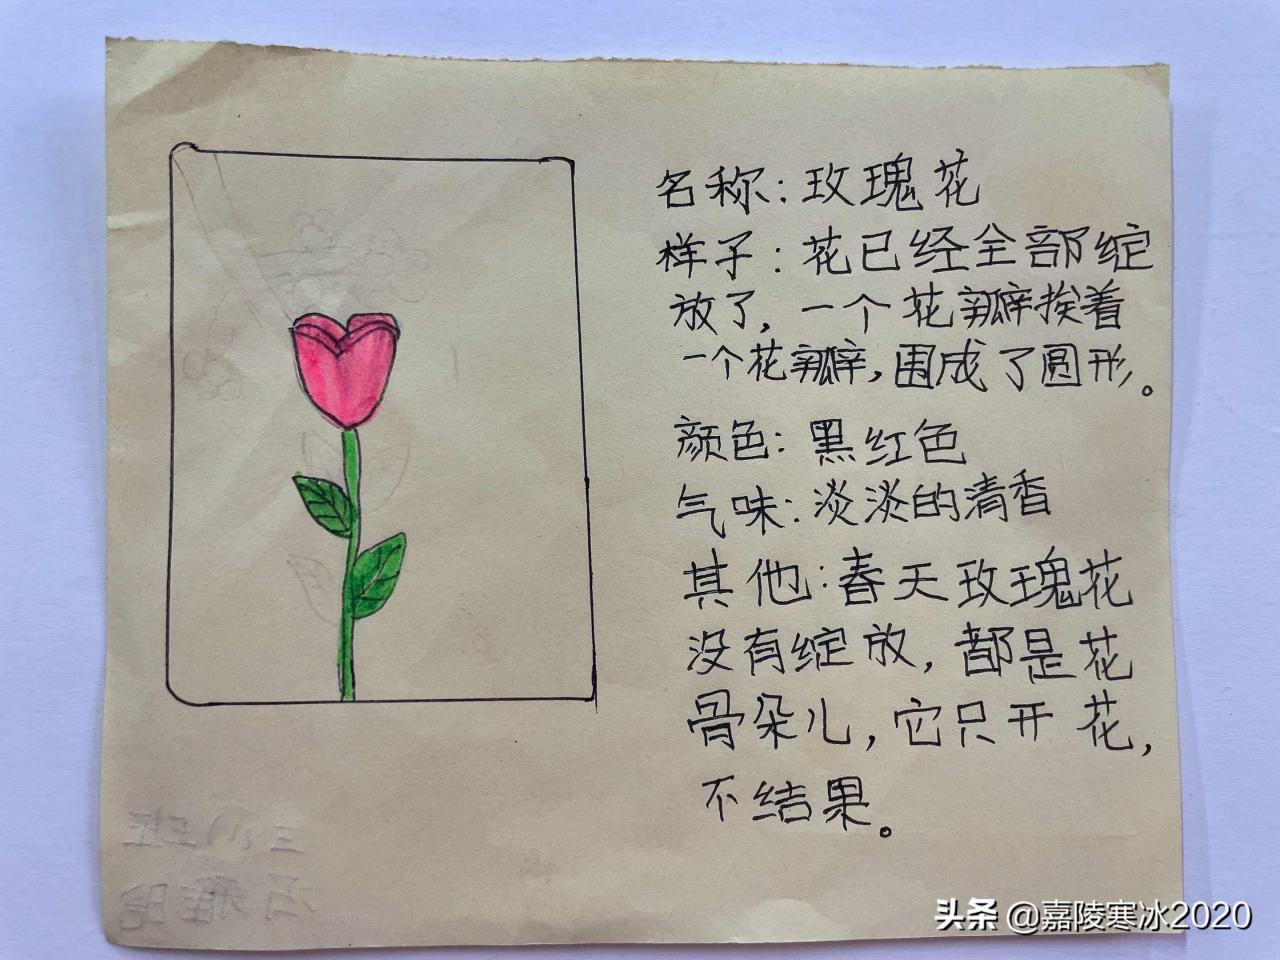 名称:玫瑰花
样子:花已经全部绽
放了,一个花瓣挨着
一个花瓣,围成了圆形。
颜色:黑红色
气味:淡淡的清香
其他:春天玫瑰花
没有绽放,都是花
骨朵儿,它只开花,
不结果。
头条 @嘉陵寒冰2020